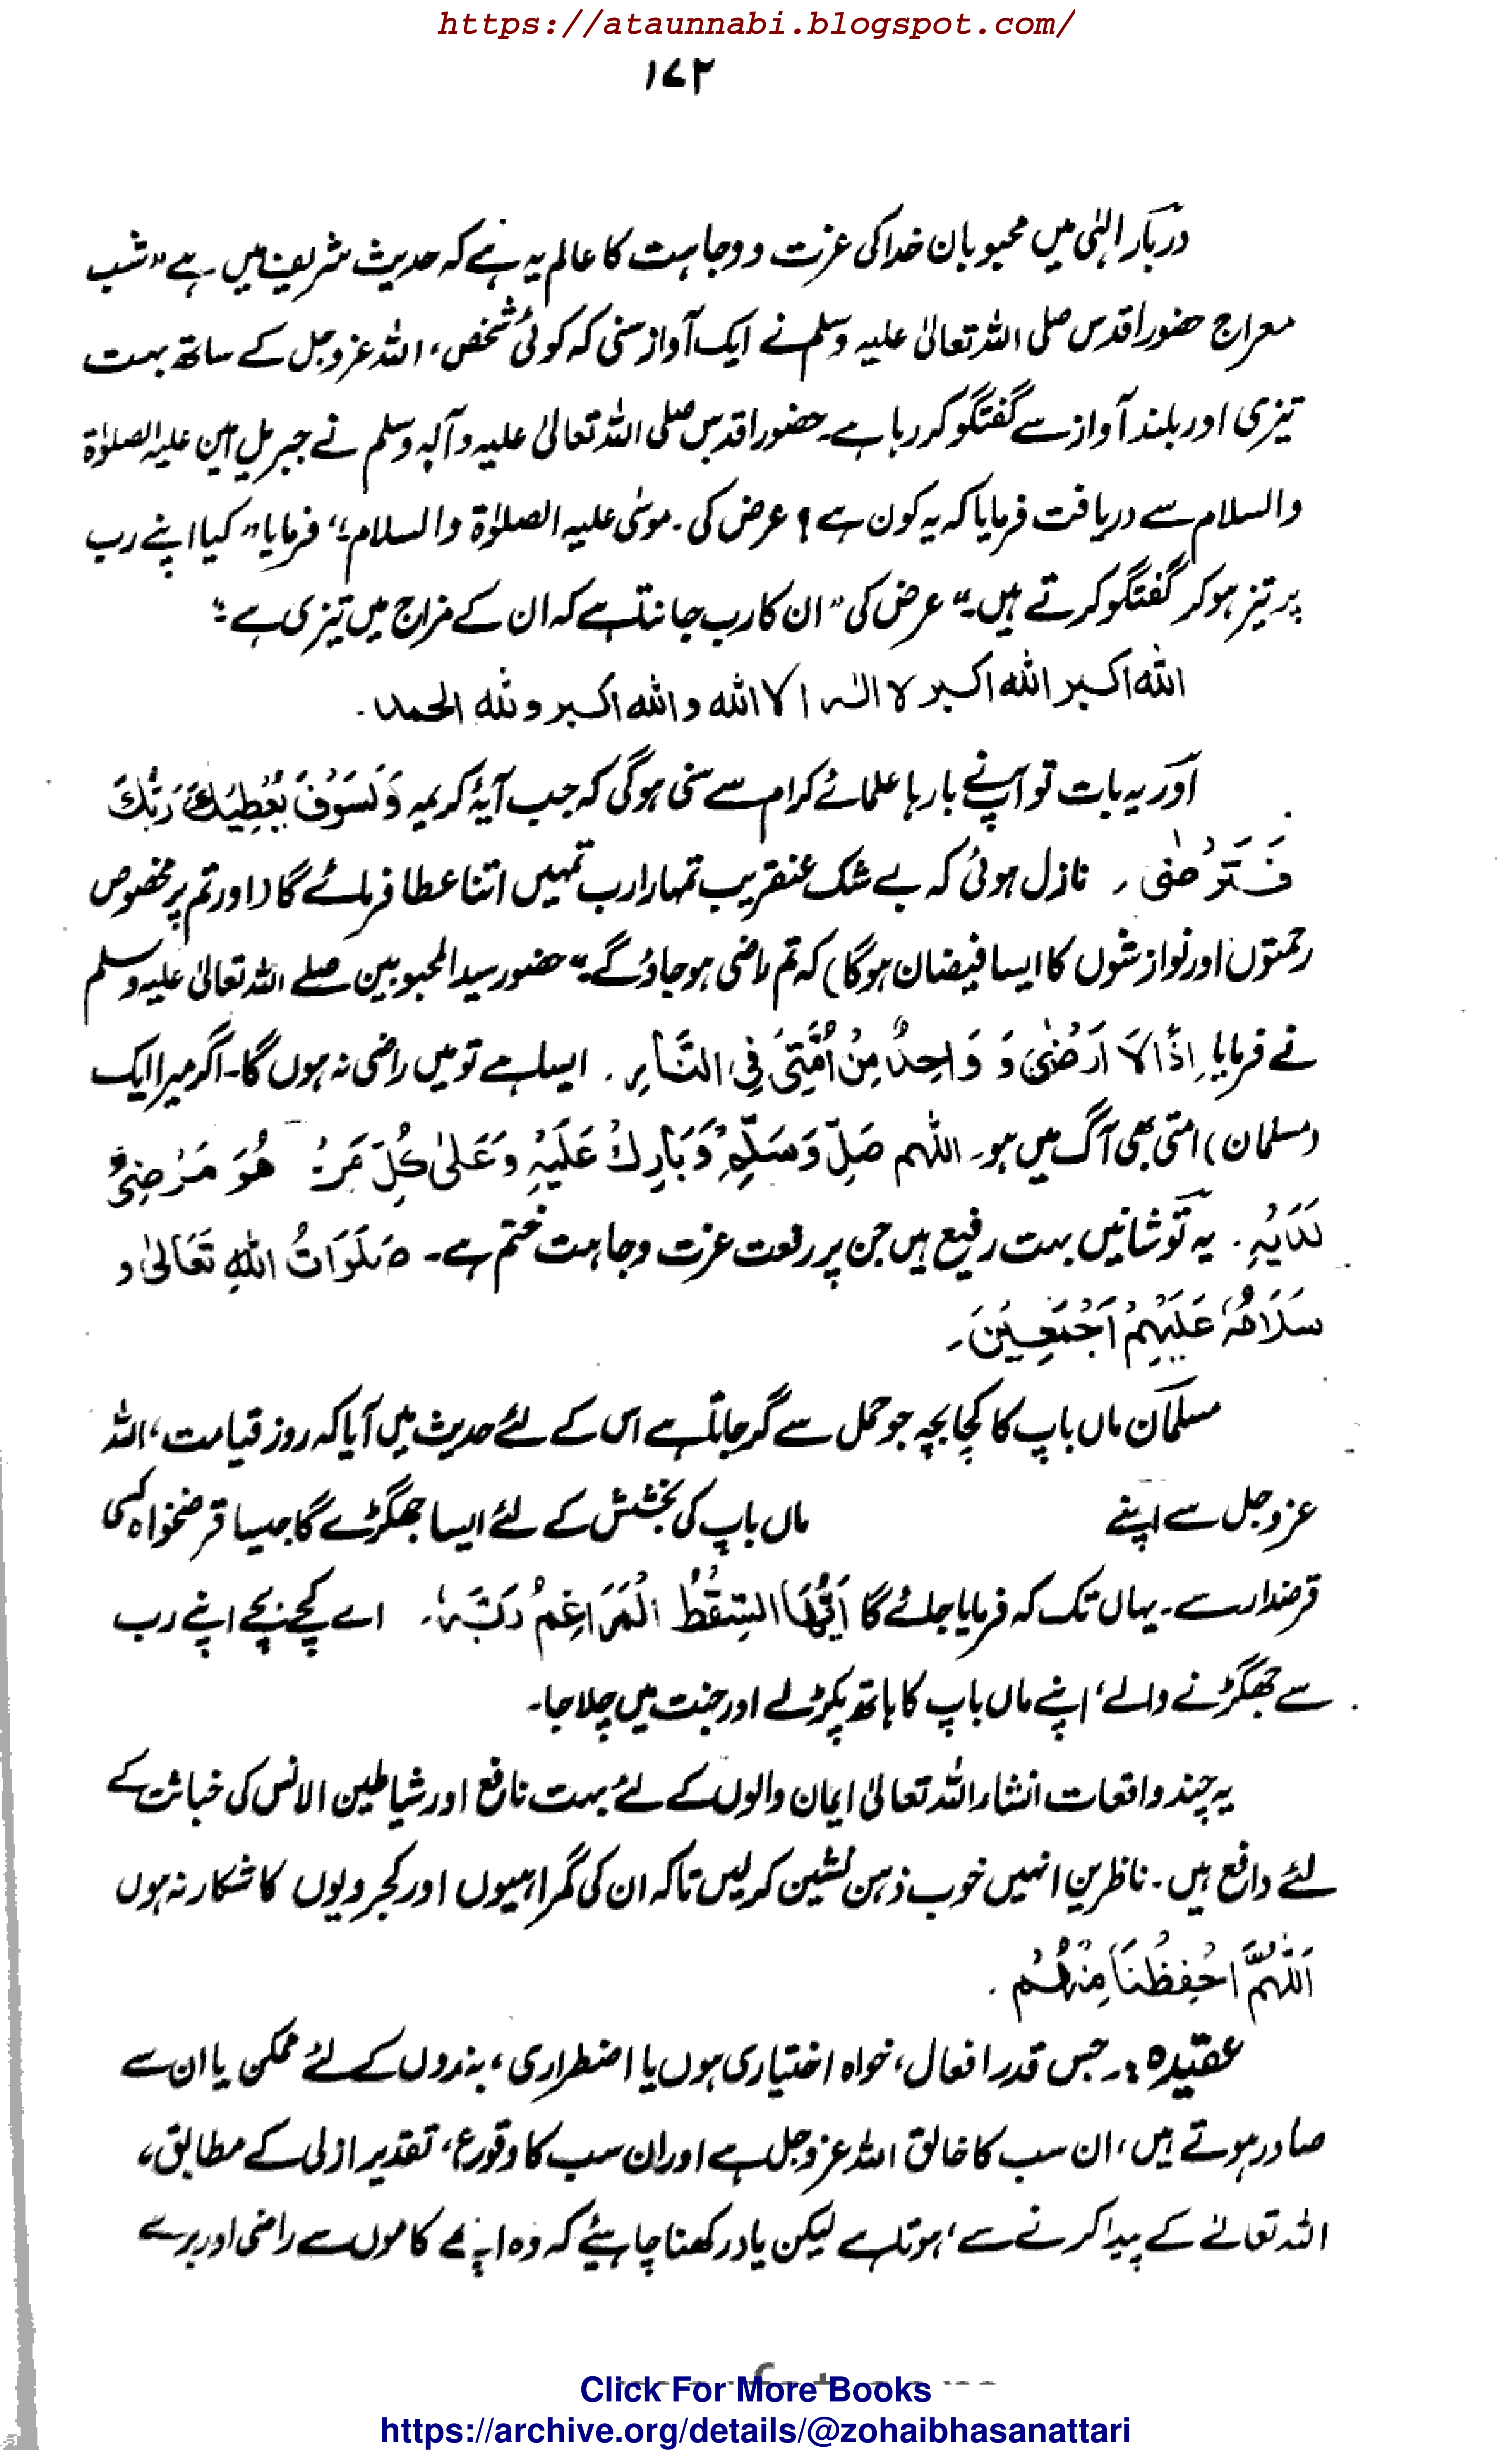 https://ataunnabi.blogspot.com/
۱۷۲
دربار الٰہی میں محبوبان خدا کی عزت و وجاہت کا عالم یہ ہے کہ حدیث شریف میں ہے "شب
معراج حضور اقدس صلی اللہ تعالیٰ علیہ وسلم نے ایک آواز سنی کہ کوئی شخص، اللہ عزوجل کے ساتھ بہت
تیزی اور بلند آواز سے گفتگو کر رہا ہے۔ حضور اقدس صلی اللہ تعالیٰ علیہ وآلہ وسلم نے جبریل امین علیہ الصلوٰۃ
والسلام سے دریافت فرمایا کہ یہ کون ہے؟ عرض کی۔ موسیٰ علیہ الصلوٰۃ والسلام"؛ فرمایا "کیا اپنے رب
پر تیز ہو کر گفتگو کرتے ہیں۔" عرض کی "ان کا رب جانتا ہے کہ ان کے مزاج میں تیزی ہے"؛
اللہ اکبر اللہ اکبر لا الہ الا اللہ واللہ اکبر وللہ الحمد۔
اور یہ بات تو آپنے بارہا علمائے کرام سے سنی ہوگی کہ جب آیۂ کریمہ وَلَسَوْفَ یُعْطِیْكَ رَبُّكَ
فَتَرْضٰی۔ نازل ہوئی کہ بے شک عنقریب تمہارا رب تمہیں اتنا عطا فرمائے گا (اور تم پر مخصوص
رحمتوں اور نوازشوں کا ایسا فیضان ہوگا) کہ تم راضی ہو جاؤ گے۔" حضور سید المحبوبین صلے اللہ تعالیٰ علیہ وسلم
نے فرمایا اِذًا لَا اَرْضٰی وَ وَاحِدٌ مِنْ اُمَّتِیْ فِی النَّارِ۔ ایسا ہے تو میں راضی نہ ہوں گا۔ اگر میرا ایک
(مسلمان) امتی بھی آگ میں ہو۔ اللہم صَلِّ وَسَلِّمْ وَبَارِكْ عَلَیْہِ وَعَلٰی کُلِّ مَنْ ھُوَ مَرْضِیٌّ
لَدَیْہِ۔ یہ تو شانیں بہت رفیع ہیں جن پر رفعت عزت وجاہت ختم ہے۔ صَلَوَاتُ اللہِ تَعَالٰی و
سَلَامُہٗ عَلَیْہِمْ اَجْمَعِیْنَ۔
مسلمان ماں باپ کا کچا بچہ جو حمل سے گر جاتا ہے اس کے لئے حدیث میں آیا کہ روز قیامت، اللہ
عزوجل سے اپنے ماں باپ کی بخشش کے لئے ایسا جھگڑے گا جیسا قرضخواہ کسی
قرضدار سے۔ یہاں تک کہ فرمایا جائے گا اَیُّھَا السِّقْطُ الْمُرَاغِمُ رَبَّہٗ۔ اے کچے بچے اپنے رب
سے جھگڑنے والے، اپنے ماں باپ کا ہاتھ پکڑ لے اور جنت میں چلا جا۔
یہ چند واقعات انشاء اللہ تعالیٰ ایمان والوں کے لئے بہت نافع اور شیاطین الانس کی خباثت کے
لئے دافع ہیں۔ ناظرین انہیں خوب ذہن نشین کر لیں تاکہ ان کی گمراہیوں اور کجرویوں کا شکار نہ ہوں
اَللّٰہُمَّ احْفِظْنَا مِنْہُمْ۔
عقیدہ:۔ جس قدر افعال، خواہ اختیاری ہوں یا اضطراری، بندوں کے لئے ممکن یا ان سے
صادر ہوتے ہیں، ان سب کا خالق اللہ عزوجل ہے اور ان سب کا وقوع، تقدیر ازلی کے مطابق،
اللہ تعالےٰ کے پیدا کرنے سے، ہوتا ہے لیکن یاد رکھنا چاہیئے کہ وہ اچھے کاموں سے راضی اور برے
Click For More Books
https://archive.org/details/@zohaibhasanattari